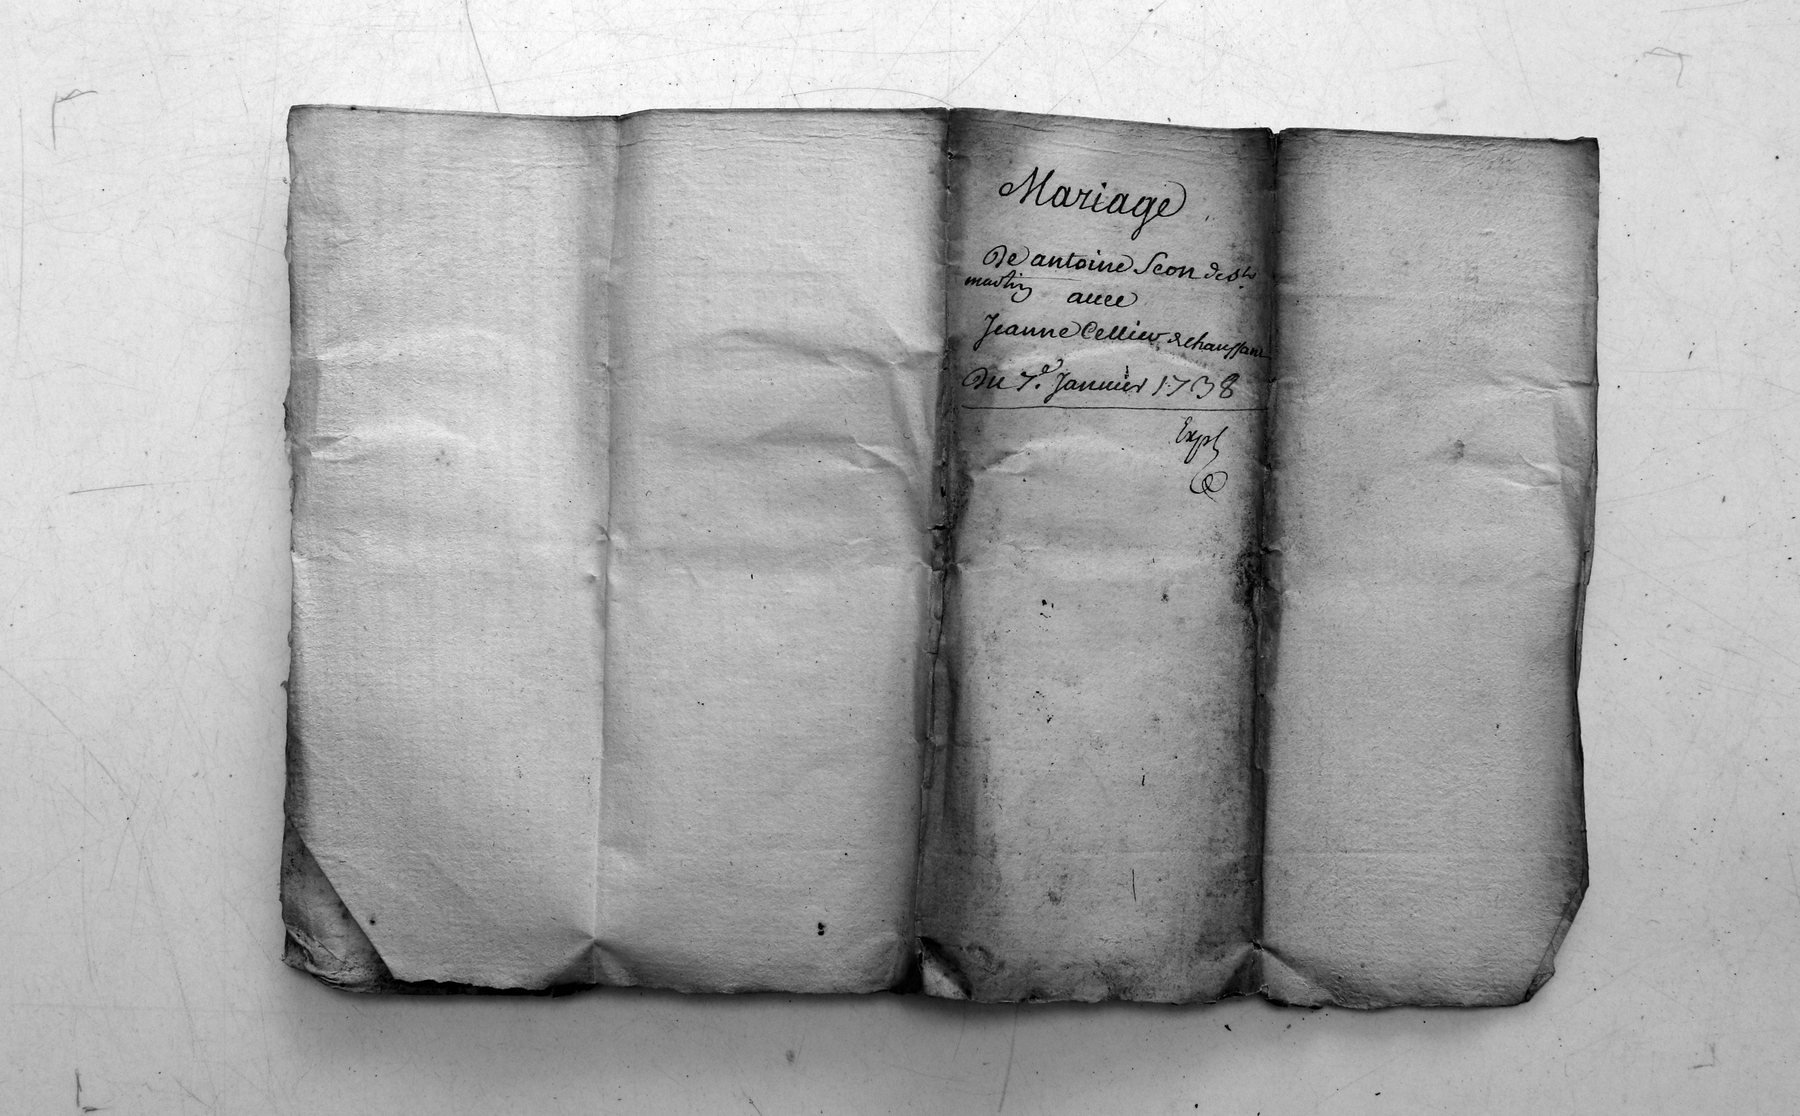 Mariage
De antoine Seon de St
martin auec
Jeanne Cellier de chaussant
Du 7e. Januier 1738
Expt